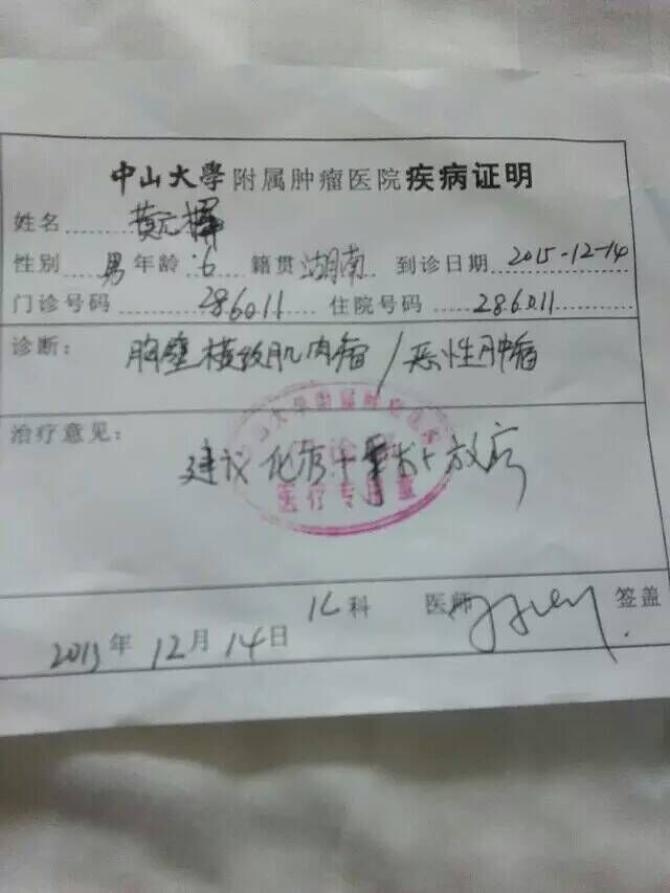 中山大學附属肿瘤医院疾病证明
姓名 黄元辉
性别 男 年龄 6 籍贯 湖南 到诊日期 2015-12-14
门诊号码 286011 住院号码 286011
诊断： 胸壁横纹肌肉瘤/恶性肿瘤
治疗意见：
建议化疗+手术+放疗
中山大学附属肿瘤医院
医疗专用章
儿科 医师 签盖
2015年12月14日